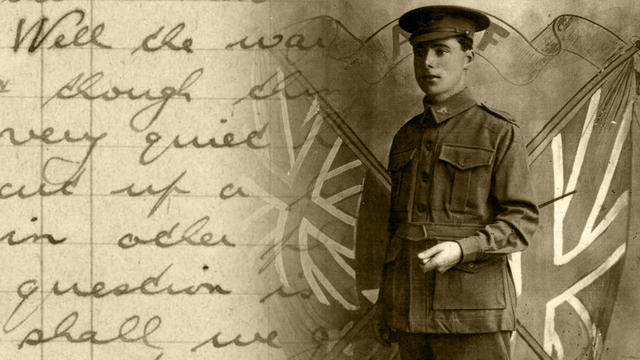 Well the wa
though
very quiet
up a
in other
question is
shall we
A F